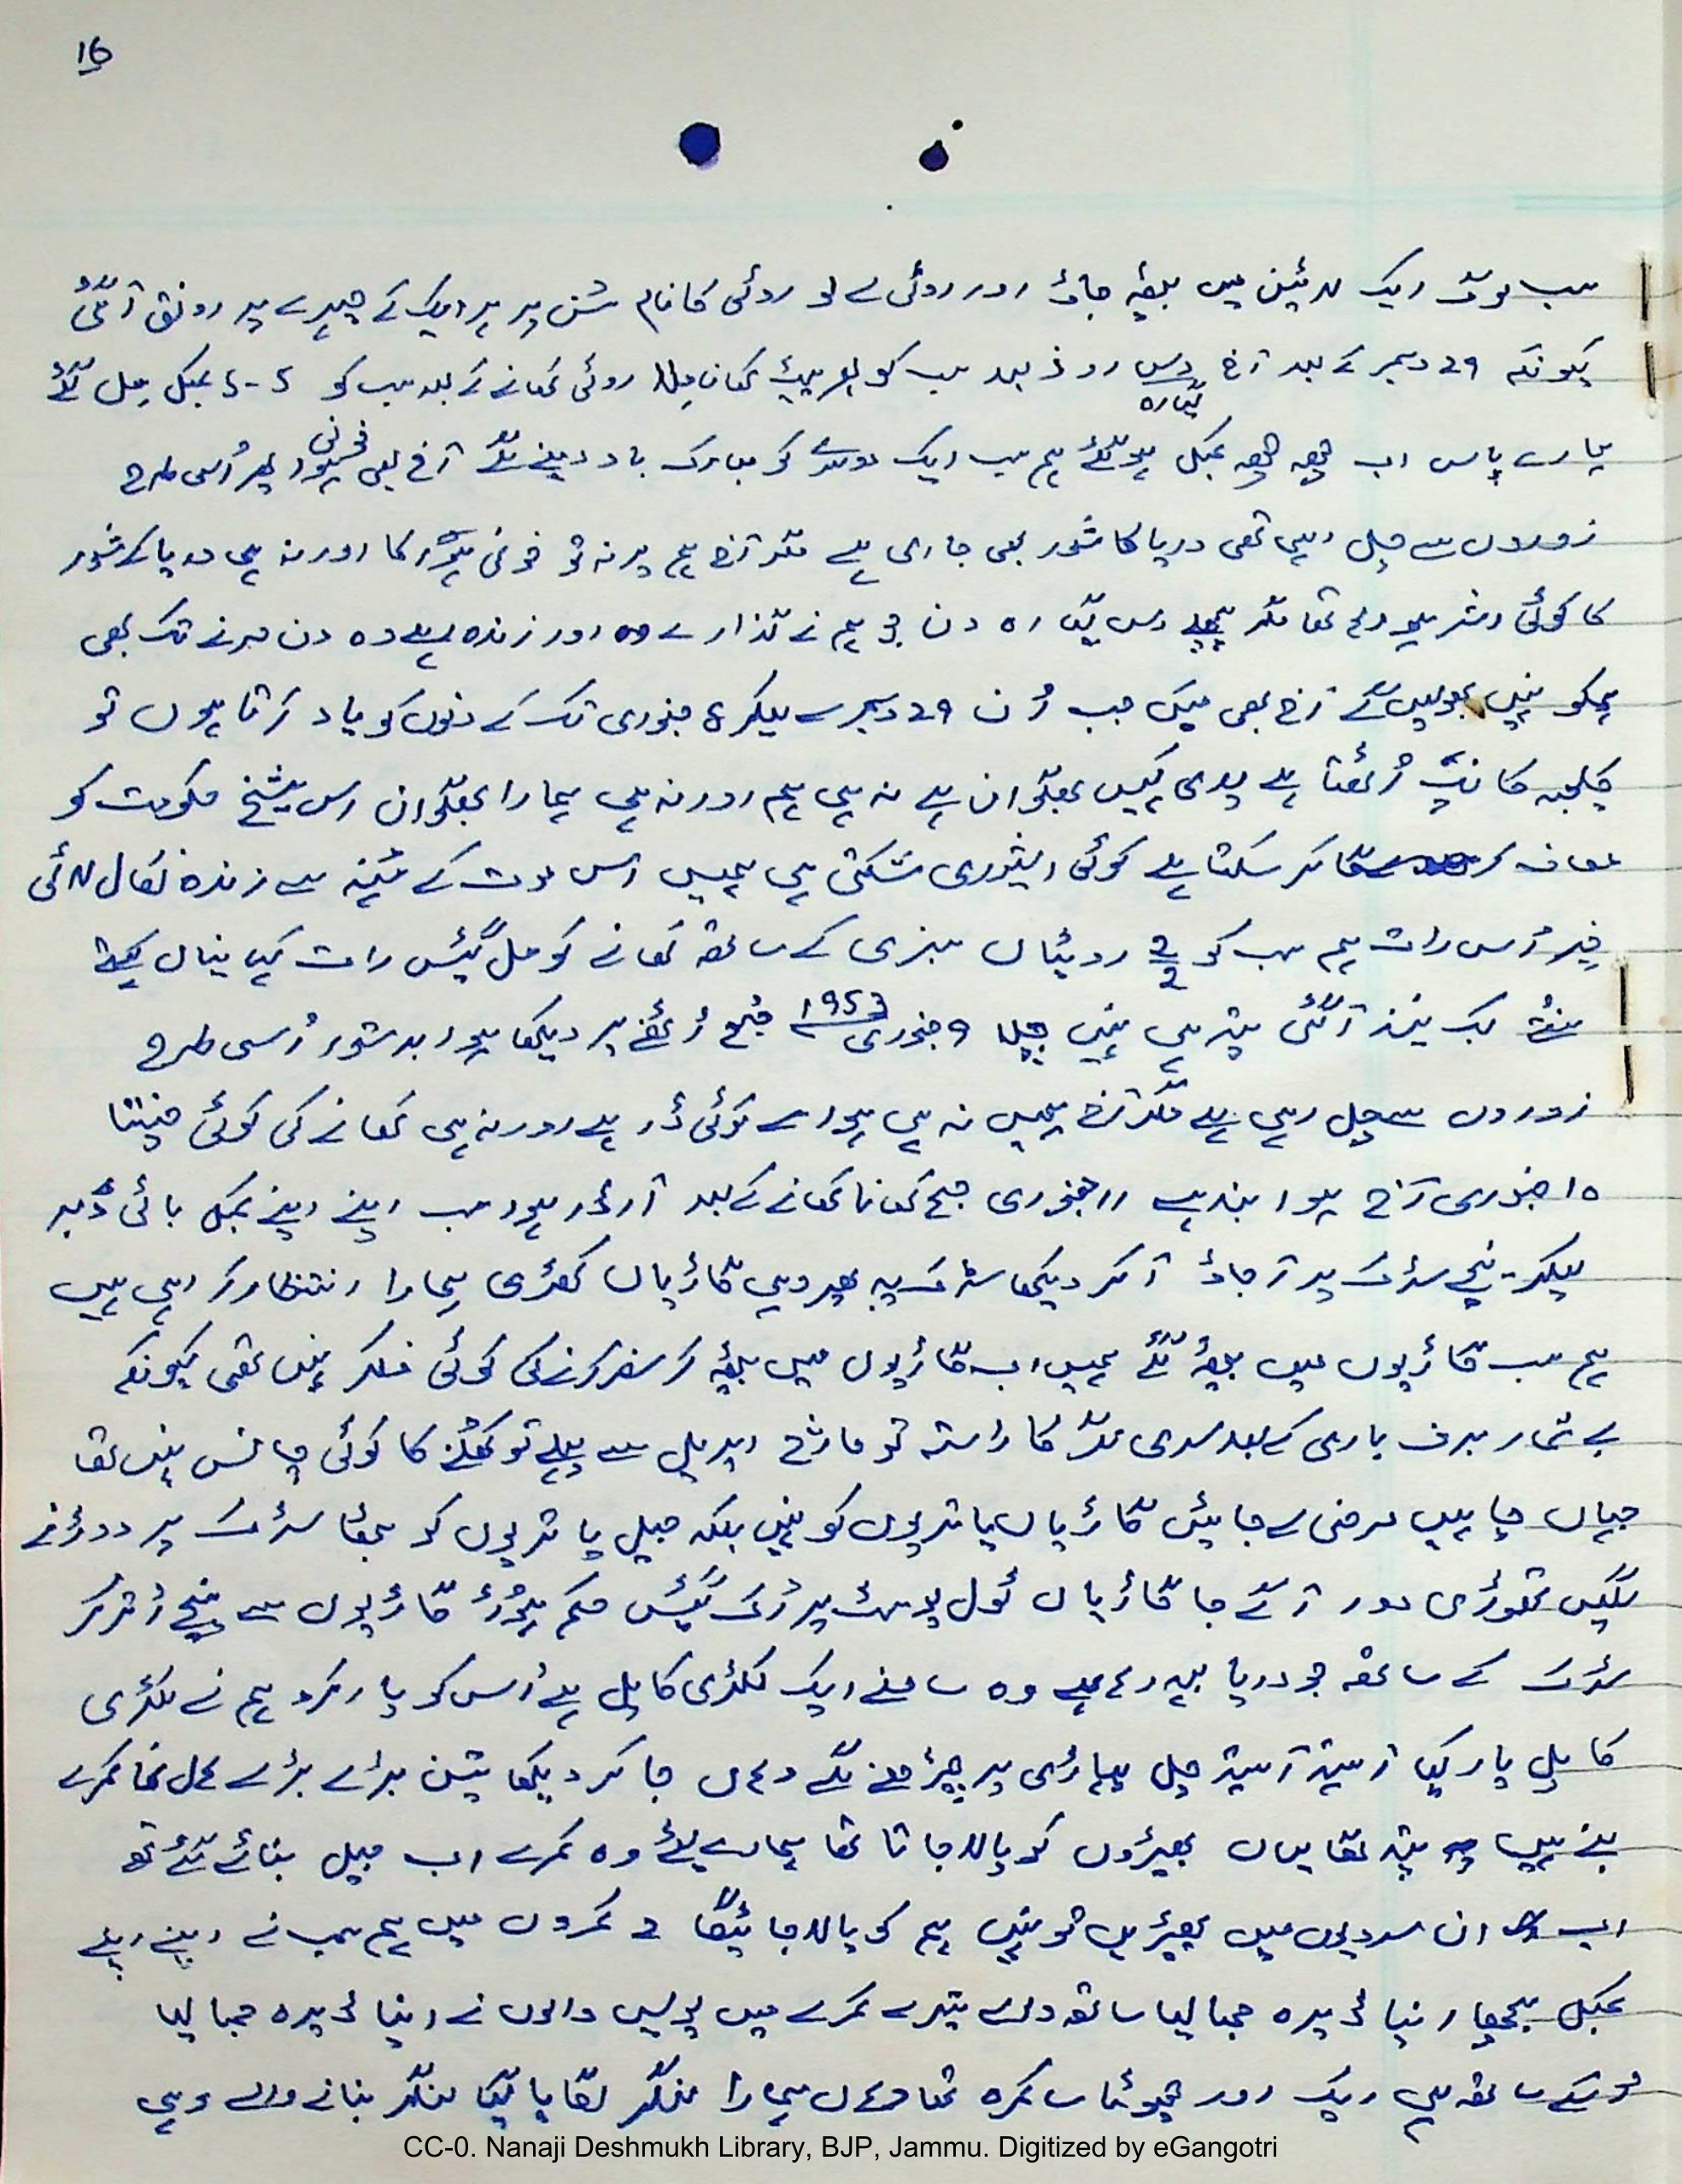 16
سب لوگ ایک لائین میں بیٹھ جاؤ اور روٹی لے لو روٹی کا نام سُن پر ہر ایک کے چہرے پر رونق آ گئی
کیونکہ 29 دسمبر کے بعد آج دس گیارہ روز بعد سب کو بھر پیٹ کھانا مِلا روٹی کھانے کے بعد سب کو 5-5 کمبل مِل گئے
ہمارے پاس اب چھ چھ کمبل ہو گئے ہم سب ایک دوسرے کو مبارک باد دینے لگے آج بھی خونی ہوا پھر اُسی طرح
زوروں سے چل رہی تھی دریا کا شور بھی جاری ہے مگر آج ہم پر نہ تو خونی ہوا کا اور نہ ہی دریا کے شور
کا کوئی اثر ہو رہا تھا مگر پچھلے دس گیارہ دن جو ہم نے گذارے وہ اور زندہ رہے وہ دن مرنے تک بھی
ہمکو نہیں بھولیں گے آج بھی میں جب اُن 29 دسمبر سے لیکر 8 جنوری تک کے دنوں کو یاد کرتا ہوں تو
کلیجہ کانپ اُٹھتا ہے یدی کہیں بھگوان ہے نہ ہی ہم اور نہ ہی ہمارا بھگوان اس شیخ حکومت کو
معاف کر سکتا ہے کوئی ایشوری شکتی ہی ہمیں اس موت کے مُنہ سے زندہ نکال لائی
خیر اُس رات ہم سب کو 2-2 روٹیاں سبزی کے ساتھ کھانے کو مل گیئں رات کیا یہاں
کب نیند آ گئی پتہ ہی نہیں چلا 9 جنوری 1953 صُبح اُٹھنے پر دیکھا ہوا بدستور اُسی طرح
زوروں سے چل رہی ہے مگر آج ہمیں نہ ہی ہوا سے کوئی ڈر ہے اور نہ ہی کھانے کی کوئی چنتا
10 جنوری آج ہوا بند ہے 11 جنوری صبح کھانا کھانے کے بعد آرڈر ہوا سب اپنے اپنے کمبل بائی ڈبہ
لیکر نیچے سڑک پر آ جاؤ آ کر دیکھا سڑک پہ پھر وہی گاڑیاں کھڑی ہمارا انتظار کر رہی ہیں
ہم سب گاڑیوں میں بیٹھ گئے ہمیں اب گاڑیوں میں بیٹھ کر سفر کرنے کی کوئی فکر نہیں تھی کیونکہ
بے شمار برف باری کے بعد سری نگر کا راستہ تو مارچ اپریل سے پہلے تو کھلنے کا کوئی چانس نہیں تھا
جہاں چاہیں مرضی لے جائیں گاڑیاں یاتریوں کو نہیں بلکہ جیل یاتریوں کو بٹھا سڑک پر دوڑنے
لگیں تھوڑی دور آگے جا گاڑیاں ٹول پوسٹ پر رُک گیئں حکم ہوا گاڑیوں سے نیچے اُتر کر
سڑک کے ساتھ جو دریا بہہ رہا ہے وہ سامنے ایک لکڑی کا پل ہے اُس کو پار کرو ہم نے لکڑی
کا پل پار کیا آہستہ آہستہ چل پہاڑی پر چڑھنے لگے وہاں جا کر دیکھا تین بڑے بڑے ہال نما کمرے
بنے ہیں پتہ لگا یہاں بھیڑوں کو پالا جاتا تھا ہمارے لئے وہ کمرے اب جیل بنائے گئے تھے
اب ان سردیوں میں بھیڑیں تو نہیں ہم کو پالا جائیگا 2 کمروں میں ہم سب نے اپنے اپنے
کمبل بچھا اپنا ڈیرہ جما لیا ساتھ والے تیسرے کمرے میں پولیس والوں نے اپنا ڈیرہ جما لیا
اسکے ساتھ ہی ایک اور چھوٹا سا کمرہ تھا وہاں ہمارا لنگر لگایا گیا لنگر بنانے والے وہی
CC-0. Nanaji Deshmukh Library, BJP, Jammu. Digitized by eGangotri